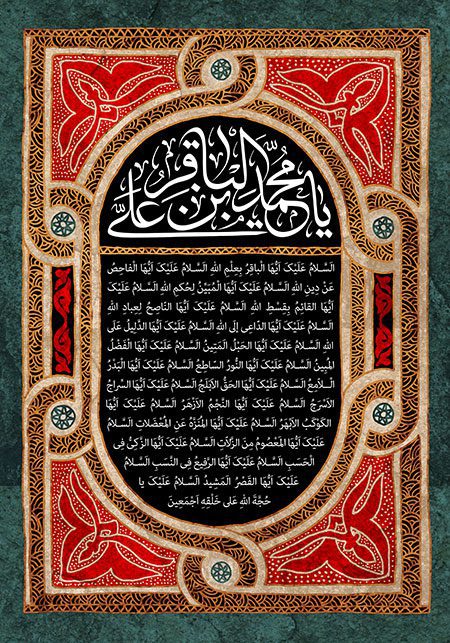 یا محمد بن علی الباقر
اَلسَّلامُ عَلَیْکَ اَیُّهَا الْباقِرُ بِعِلْمِ اللهِ اَلسَّلامُ عَلَیْکَ اَیُّهَا الْفاحِصُ
عَنْ دینِ اللهِ اَلسَّلامُ عَلَیْکَ اَیُّهَا الْمُبَیِّنُ لِحُکْمِ اللهِ اَلسَّلامُ عَلَیْکَ
اَیُّهَا الْقائِمُ بِقِسْطِ اللهِ اَلسَّلامُ عَلَیْکَ اَیُّهَا النّاصِحُ لِعِبادِ اللهِ
اَلسَّلامُ عَلَیْکَ اَیُّهَا الدّاعی اِلَی اللهِ اَلسَّلامُ عَلَیْکَ اَیُّهَا الدَّلیلُ عَلَی
اللهِ اَلسَّلامُ عَلَیْکَ اَیُّهَا الْحَبْلُ الْمَتینُ اَلسَّلامُ عَلَیْکَ اَیُّهَا الْفَضْلُ
الْمُبینُ اَلسَّلامُ عَلَیْکَ اَیُّهَا النُّورُ السّاطِعُ اَلسَّلامُ عَلَیْکَ اَیُّهَا الْبَدْرُ
الْـلامِعُ اَلسَّلامُ عَلَیْکَ اَیُّهَا الْحَقُّ الْاَبْلَجُ اَلسَّلامُ عَلَیْکَ اَیُّهَا السِّراجُ
الْاَسْرَجُ اَلسَّلامُ عَلَیْکَ اَیُّهَا النَّجْمُ الْاَزْهَرُ اَلسَّلامُ عَلَیْکَ اَیُّهَا
الْکَوْکَبُ الْاَبْهَرُ اَلسَّلامُ عَلَیْکَ اَیُّهَا الْمُنَزَّهُ عَنِ الْمُعْضَلاتِ اَلسَّلامُ
عَلَیْکَ اَیُّهَا الْمَعْصُومُ مِنَ الزَّلّاتِ اَلسَّلامُ عَلَیْکَ اَیُّهَا الزَّکِیُّ فِی
الْحَسَبِ اَلسَّلامُ عَلَیْکَ اَیُّهَا الرَّفیعُ فِی النَّسَبِ اَلسَّلامُ
عَلَیْکَ اَیُّهَا الْقَصْرُ الْمَشیدُ اَلسَّلامُ عَلَیْکَ یا
حُجَّةَ اللهِ عَلی خَلْقِهِ اَجْمَعینَ